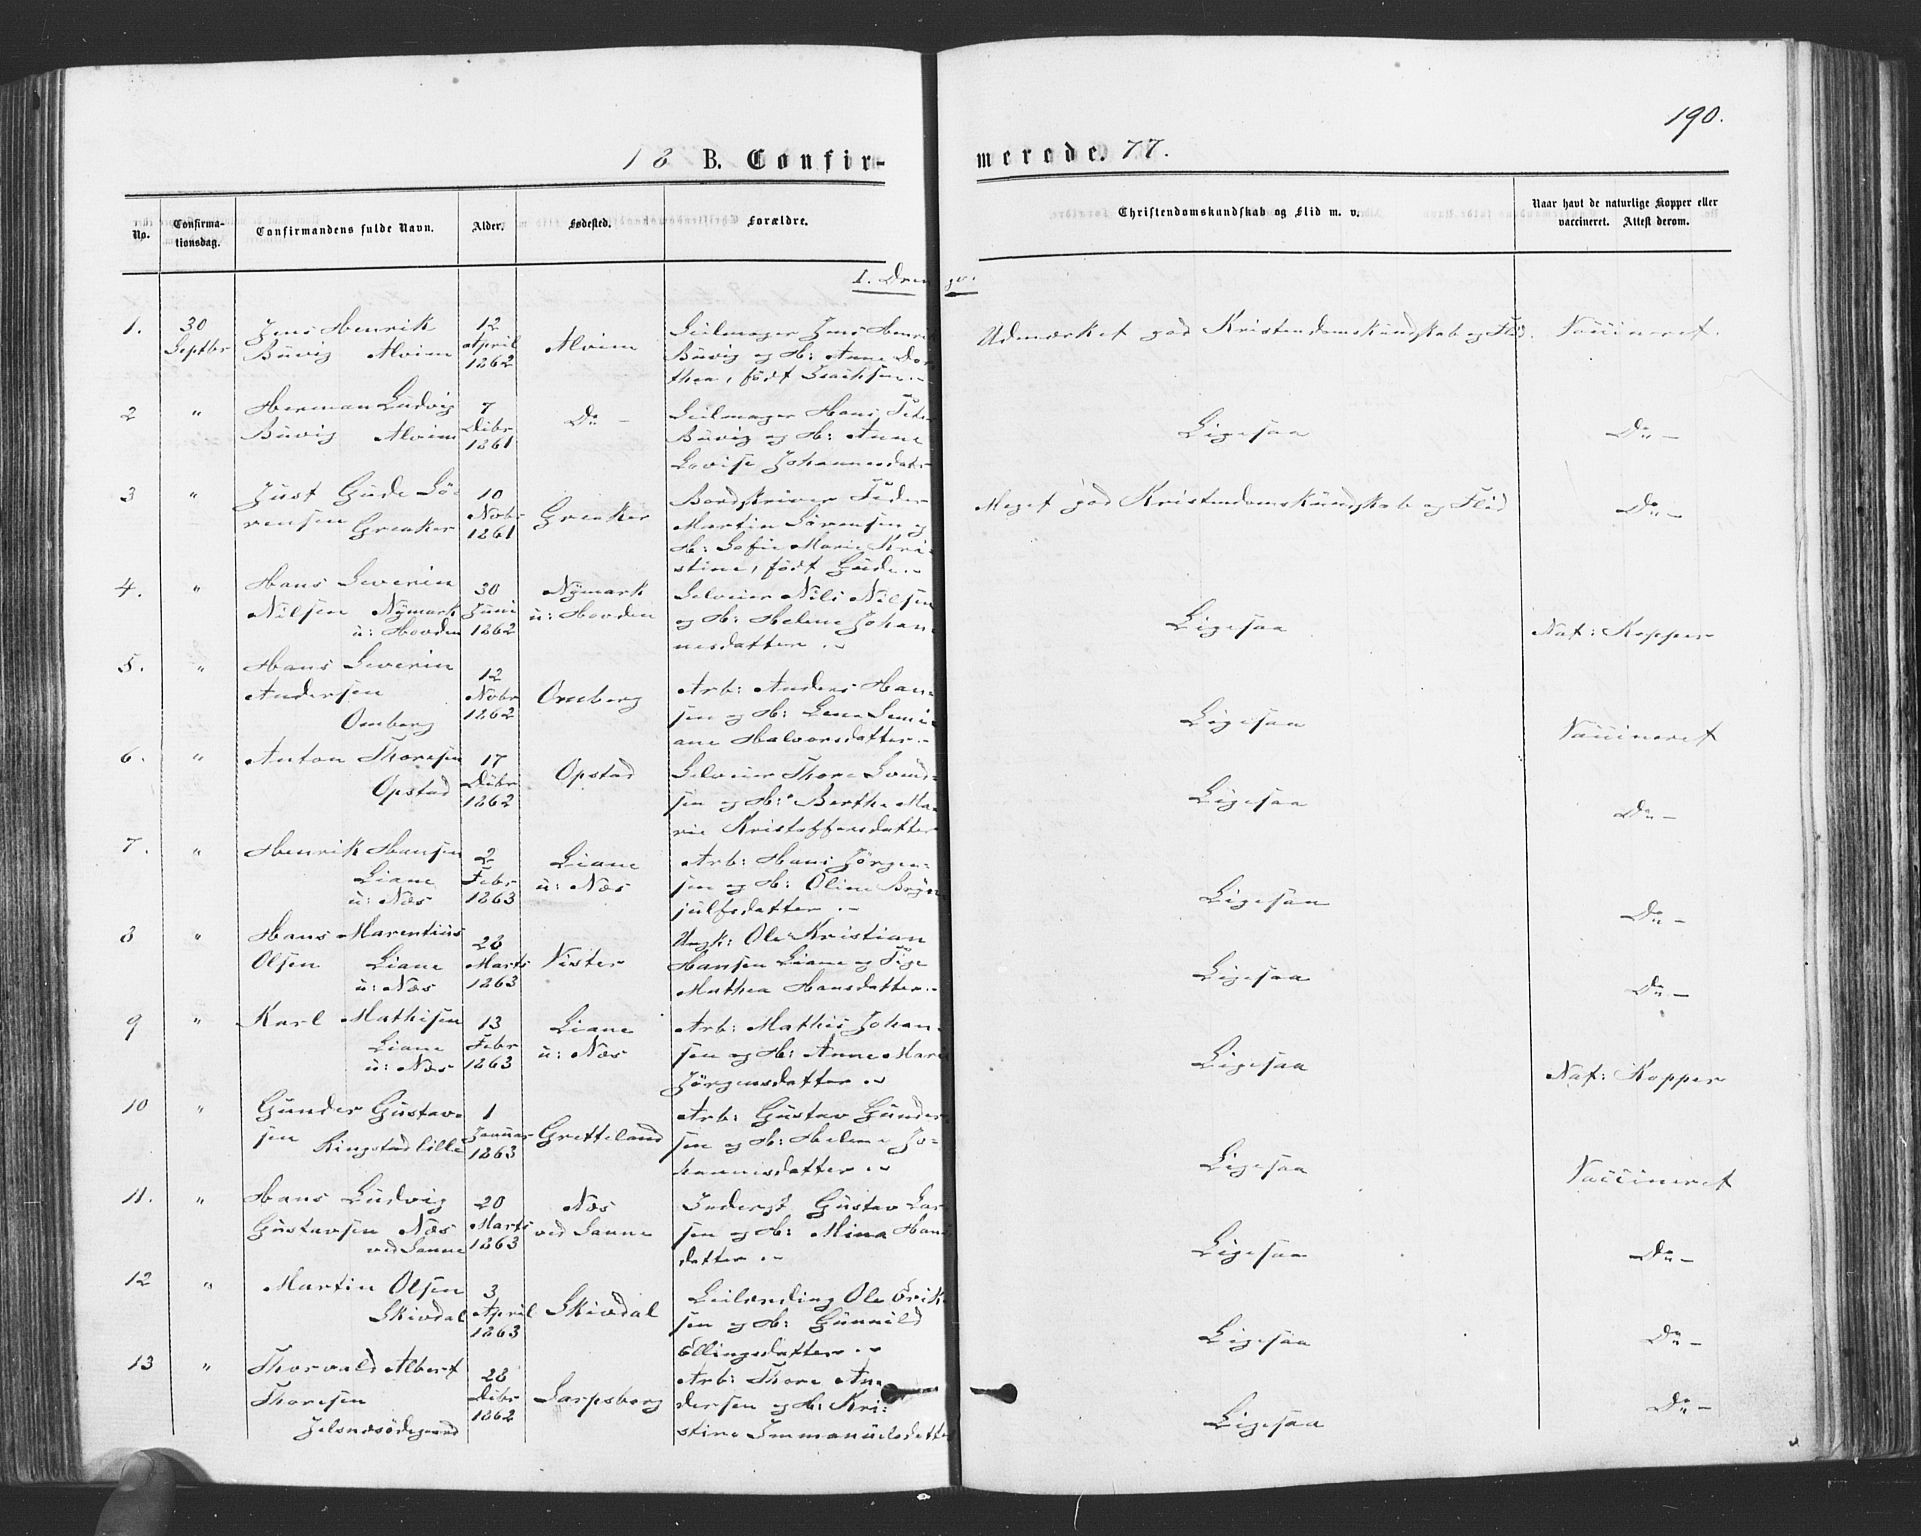 190.
18 B. Confir-
merede. 77.
No.
Confirma-
tionsdag.
Confirmandens fulde Navn.
Alder.
Fødested.
Forældre.
Christendomskundskab og Flid m. v.
Naar havt de naturlige Kopper eller
vaccineret. Attest derom.
1. Drenge.
1.
30
Septbr
Jens Henrik
Buvig Alvim
12
April
1862
Alvim
Seilmager Jens Henrik
Buvig og H: Anne Doro
thea, født Isachsen.-
Udmærket god Kristendomskundskab og Flid.
Vaccineret.
2
"
Herman Ludvig
Buvig Alvim
7
Dcbr
1861
Do -
Seilmager Hans Peter
Buvig og H: Anne
Lovise Johannesdatr
Ligesaa
Do -
3
"
Just Gude Sö-
rensen Greaker
10
Nobr
1861
Greaker
Bordskriver Peder
Martin Sörensen og
H: Sofie Marie Kri-
stine, født Gude.-
Meget god Kristendomskundskab og Flid
Do -
4.
"
Hans Severin
Nilsen Nymark
u: Hovden
30
Juni
1862
Nymark
u: Hovden
Selveier Nils Nilsen
og H: Helene Johan
nesdatter .-
Ligesaa
Nat: Kopper
5.
"
Hans Severin
Andersen
Omberg
12
Nobr
1862
Omberg
Arb: Anders Han-
sen og H: Lene
ane Halvorsdatter.-
Ligesaa
Vaccineret
6.
"
Anton Thoresen
Opstad
17
Dcbr
1862
Opstad
Selveier Thore Svend-
sen og H: Berthe Ma
rie Kristoffersdatter
Ligesaa
Do -
7.
"
Henrik Hansen
Liane
u: Næs
2
Febr
1863
Liane
u: Næs
Arb: Hans Jörgen-
sen og H: Oline Bryn
julfsdatter .-
Ligesaa
Do -
8
"
Hans Marentius
Olsen Liane
u: Næs
28
Marts
1863
Vister
Ungk: Ole Kristian
Hansen Liane og Pige
Mathea Hansdatter.-
Ligesaa
Do -
9
"
Karl Mathisen
Liane
u: Næs
13
Febr
1863
Liane
u: Næs
Arb: Mathis Johan-
sen og H: Anne Marie
Jörgensdatter .-
Ligesaa
Nat: Kopper
10
"
Gunder Gustav-
sen
Ringstad lille
1
Januar
1863
Gretteland
Arb: Gustav Gunder-
sen og H: Helene Jo-
hannisdatter .-
Ligesaa
Vaccineret
11.
"
Hans Ludvig
Gustavsen Næs
ved Sanne
20
Marts
1863
Næs
ved Sanne
Inderst Gustav Lar
sen og H: Mina Hans
datter .-
Ligesaa
Do -
12
"
Martin Olsen
Skivdal
3
April
1863
Skivdal
Leilænding Ole Erik-
sen og H: Gunnild
Ellingsdatter .-
Ligesaa
Do -
13
"
Thorvald Albert
Thoresen
Jelsnæsödegaard
28
Dcbr
1862
Sarpsborg
Arb: Thore An-
dersen og H: Kri-
stine Immanuelsdatter
Ligesaa
Do -